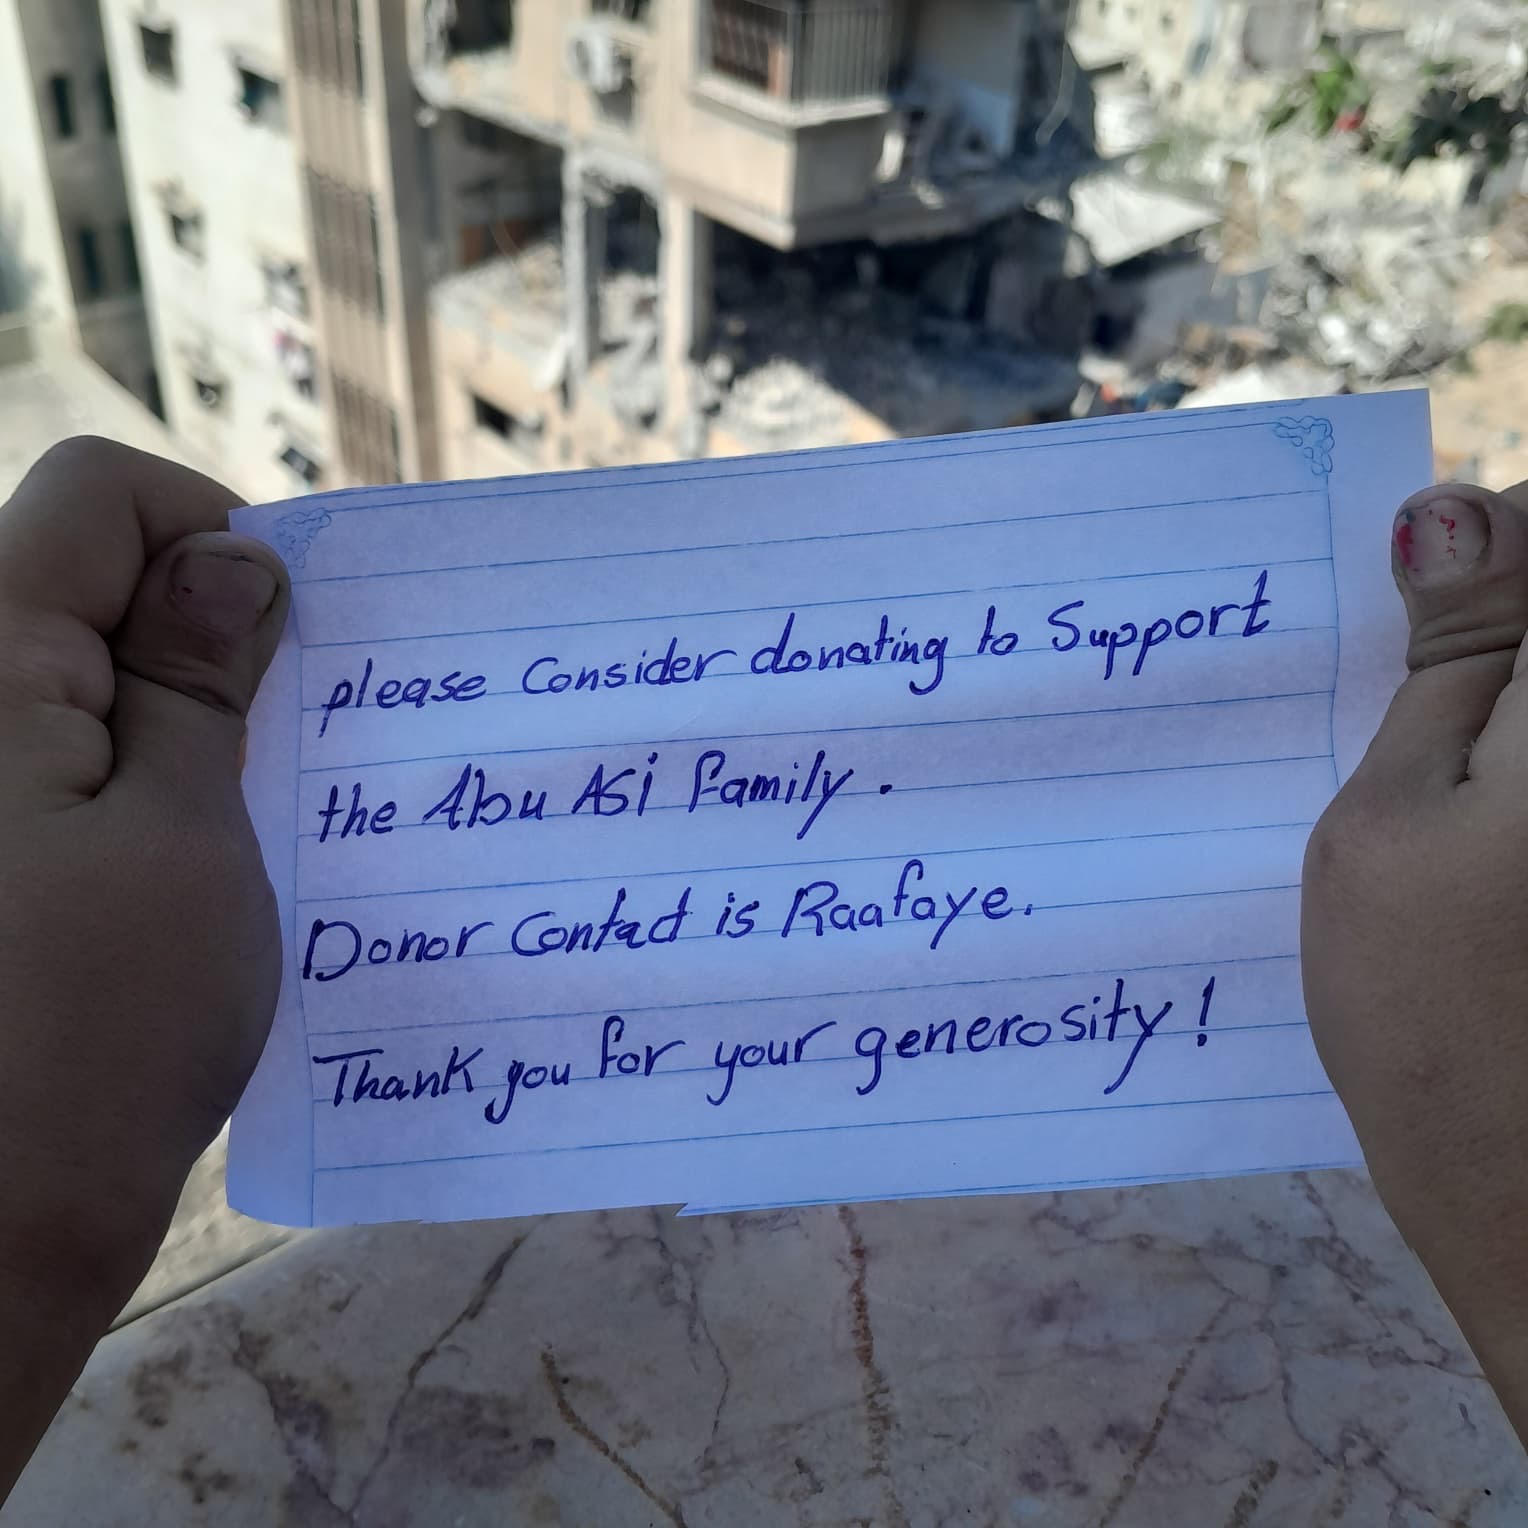 please Consider donating to Support
the Abu ASi family.
Donor Contact is Raafaye.
Thank you for your generosity!